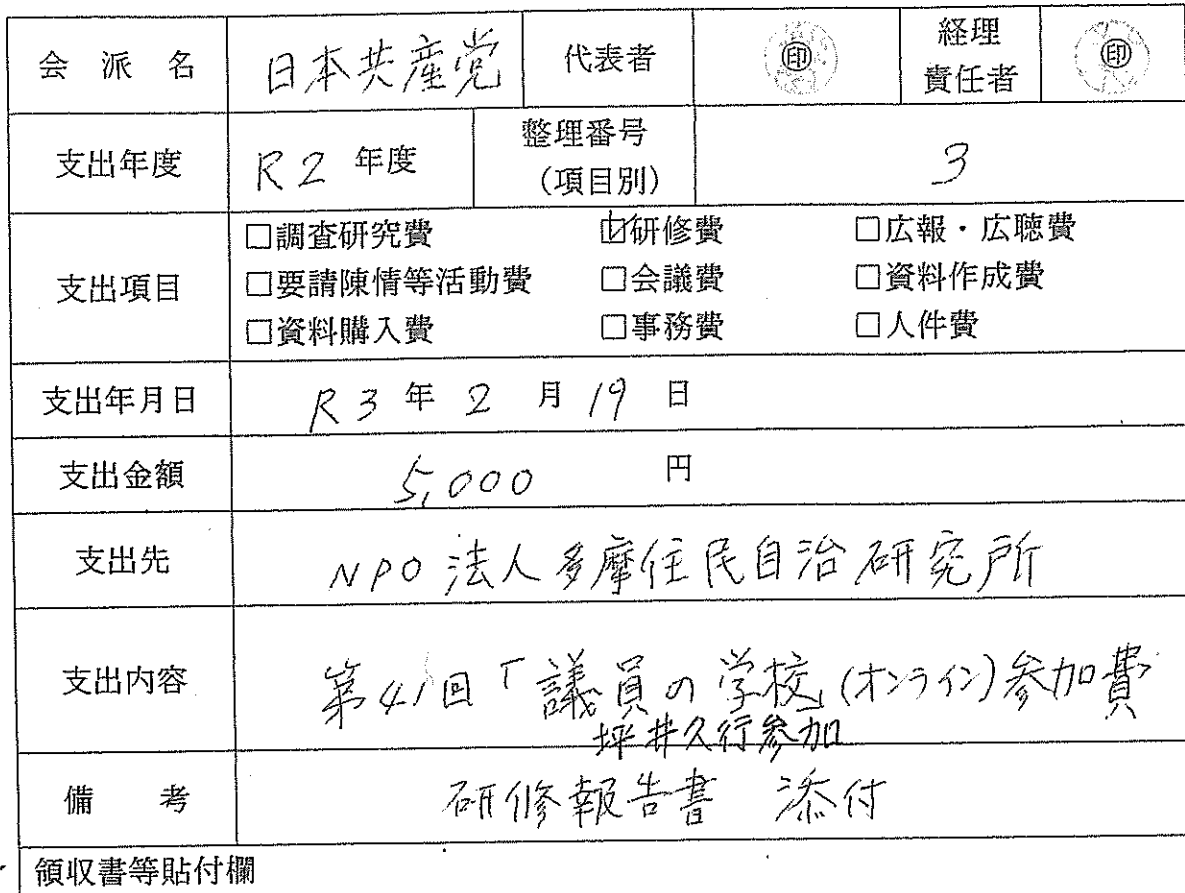 会 派 名 日本共産党 代表者 ㊞ 経理責任者 ㊞
支出年度 R2 年度 整理番号(項目別) 3
支出項目
□調査研究費 ☑研修費 □広報・広聴費
□要請陳情等活動費 □会議費 □資料作成費
□資料購入費 □事務費 □人件費
支出年月日 R3 年 2 月 19 日
支出金額 5,000 円
支出先 NPO法人多摩住民自治研究所
支出内容 第41回「議員の学校」(オンライン)参加費
坪井久行参加
備 考 研修報告書 添付
領収書等貼付欄